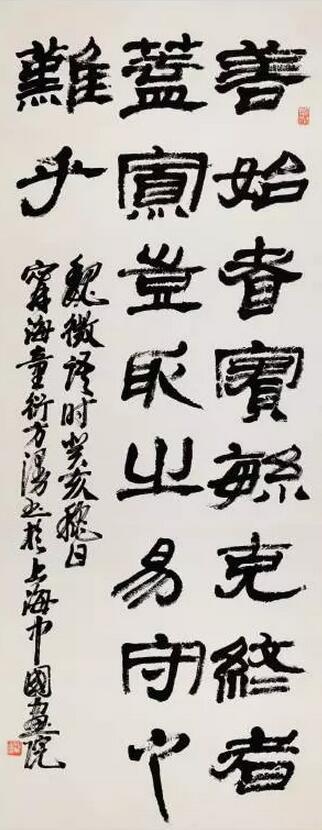 善始者實緐克終者
蓋寡豈取之易守之
難乎
魏徵語時癸亥穐日
甯海童衍方漫書於上海中國畫院